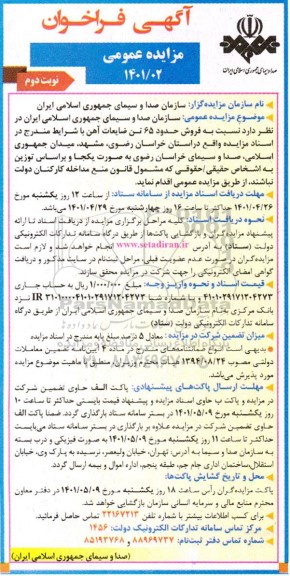 آگهی فراخوان
مزایده عمومی
۱۴۰۱/۰۲
نوبت دوم
صدا و سیمای جمهوری اسلامی ایران
نام سازمان مزایده‌گزار: سازمان صدا و سیمای جمهوری اسلامی ایران
موضوع مزایده عمومی: سازمان صدا و سیمای جمهوری اسلامی ایران در
نظر دارد نسبت به فروش حدود ۶۵ تن ضایعات آهن با شرایط مندرج در
اسناد مزایده واقع در استان خراسان رضوی، مشهد، میدان جمهوری
اسلامی، صدا و سیمای خراسان رضوی به صورت یکجا و براساس توزین
به اشخاص حقیقی/حقوقی که مشمول قانون منع مداخله کارکنان دولت
نباشند، از طریق مزایده عمومی اقدام نماید.
مهلت دریافت اسناد مزایده از سامانه ستاد: از ساعت ۱۲ روز یکشنبه مورخ
۱۴۰۱/۰۴/۲۶ حداکثر تا ساعت ۱۶ روز چهارشنبه مورخ ۱۴۰۱/۰۴/۲۹ می‌باشد.
نحوه دریافت اسناد: کلیه مراحل برگزاری مزایده از دریافت اسناد تا ارائه
پیشنهاد مزایده‌گران و بازگشایی پاکت‌ها از طریق درگاه سامانه تدارکات الکترونیکی
دولت (ستاد) به آدرس www.setadiran.ir انجام خواهد شد و لازم است
مزایده‌گران در صورت عدم عضویت قبلی، مراحل ثبت‌نام در سایت مذکور و دریافت
گواهی امضای الکترونیکی را جهت شرکت در مزایده محقق سازند.
قیمت اسناد و نحوه واریز وجه: مبلغ ۱/۰۰۰/۰۰۰ ریال به حساب جاری
نزد
بانک مرکزی به‌نام سازمان صدا و سیمای جمهوری اسلامی ایران از طریق درگاه
سامانه تدارکات الکترونیکی دولت (ستاد)
میزان تضمین شرکت در مزایده: معادل ۵ درصد مبلغ پایه مندرج در اسناد مزایده
بدیهی است انواع ضمانتنامه‌های مندرج در ماده ۴ آیین‌نامه تضمین معاملات
دولتی مصوب ۱۳۹۴/۰۸/۲۴ هیأت محترم وزیران، منطبق با ماهیت موضوع مزایده
مورد پذیرش می‌باشد.
مهلت ارسال پاکت‌های پیشنهادی: پاکت الف حاوی تضمین شرکت
در مزایده و پاکت ب حاوی اسناد مزایده و پیشنهاد قیمت بایستی حداکثر تا ساعت ۱۰
روز یکشنبه مورخ ۱۴۰۱/۰۵/۰۹ در بستر سامانه ستاد بارگذاری گردد. ضمنا پاکت الف
حاوی تضمین شرکت در مزایده علاوه بر بارگذاری در بستر سامانه ستاد می‌بایست
حداکثر تا ساعت ۱۱ روز یکشنبه مورخ ۱۴۰۱/۰۵/۰۹ به صورت فیزیکی و درب بسته
به سازمان صدا و سیما به آدرس: تهران، خیابان ولیعصر، نرسیده به پارک وی، خیابان
استقلال، ساختمان اداری جام جم، طبقه پنجم، اداره اموال و بیمه ارسال گردد.
محل و تاریخ گشایش پاکت‌ها:
پاکت مزایده‌گران رأس ساعت ۱۸ روز یکشنبه مورخ ۱۴۰۱/۰۵/۰۹ در دفتر معاون
محترم منابع مالی و سرمایه انسانی سازمان بازگشایی خواهد شد.
برای کسب اطلاعات بیشتر با شماره تلفن ۲۲۱۶۷۲۱۳ تماس حاصل فرمائید.
مرکز تماس سامانه تدارکات الکترونیک دولت: ۱۴۵۶
شماره تماس دفتر ثبت‌نام: ۸۸۹۶۹۷۳۷ و ۸۵۱۹۳۷۶۸
(صدا و سیمای جمهوری اسلامی ایران)